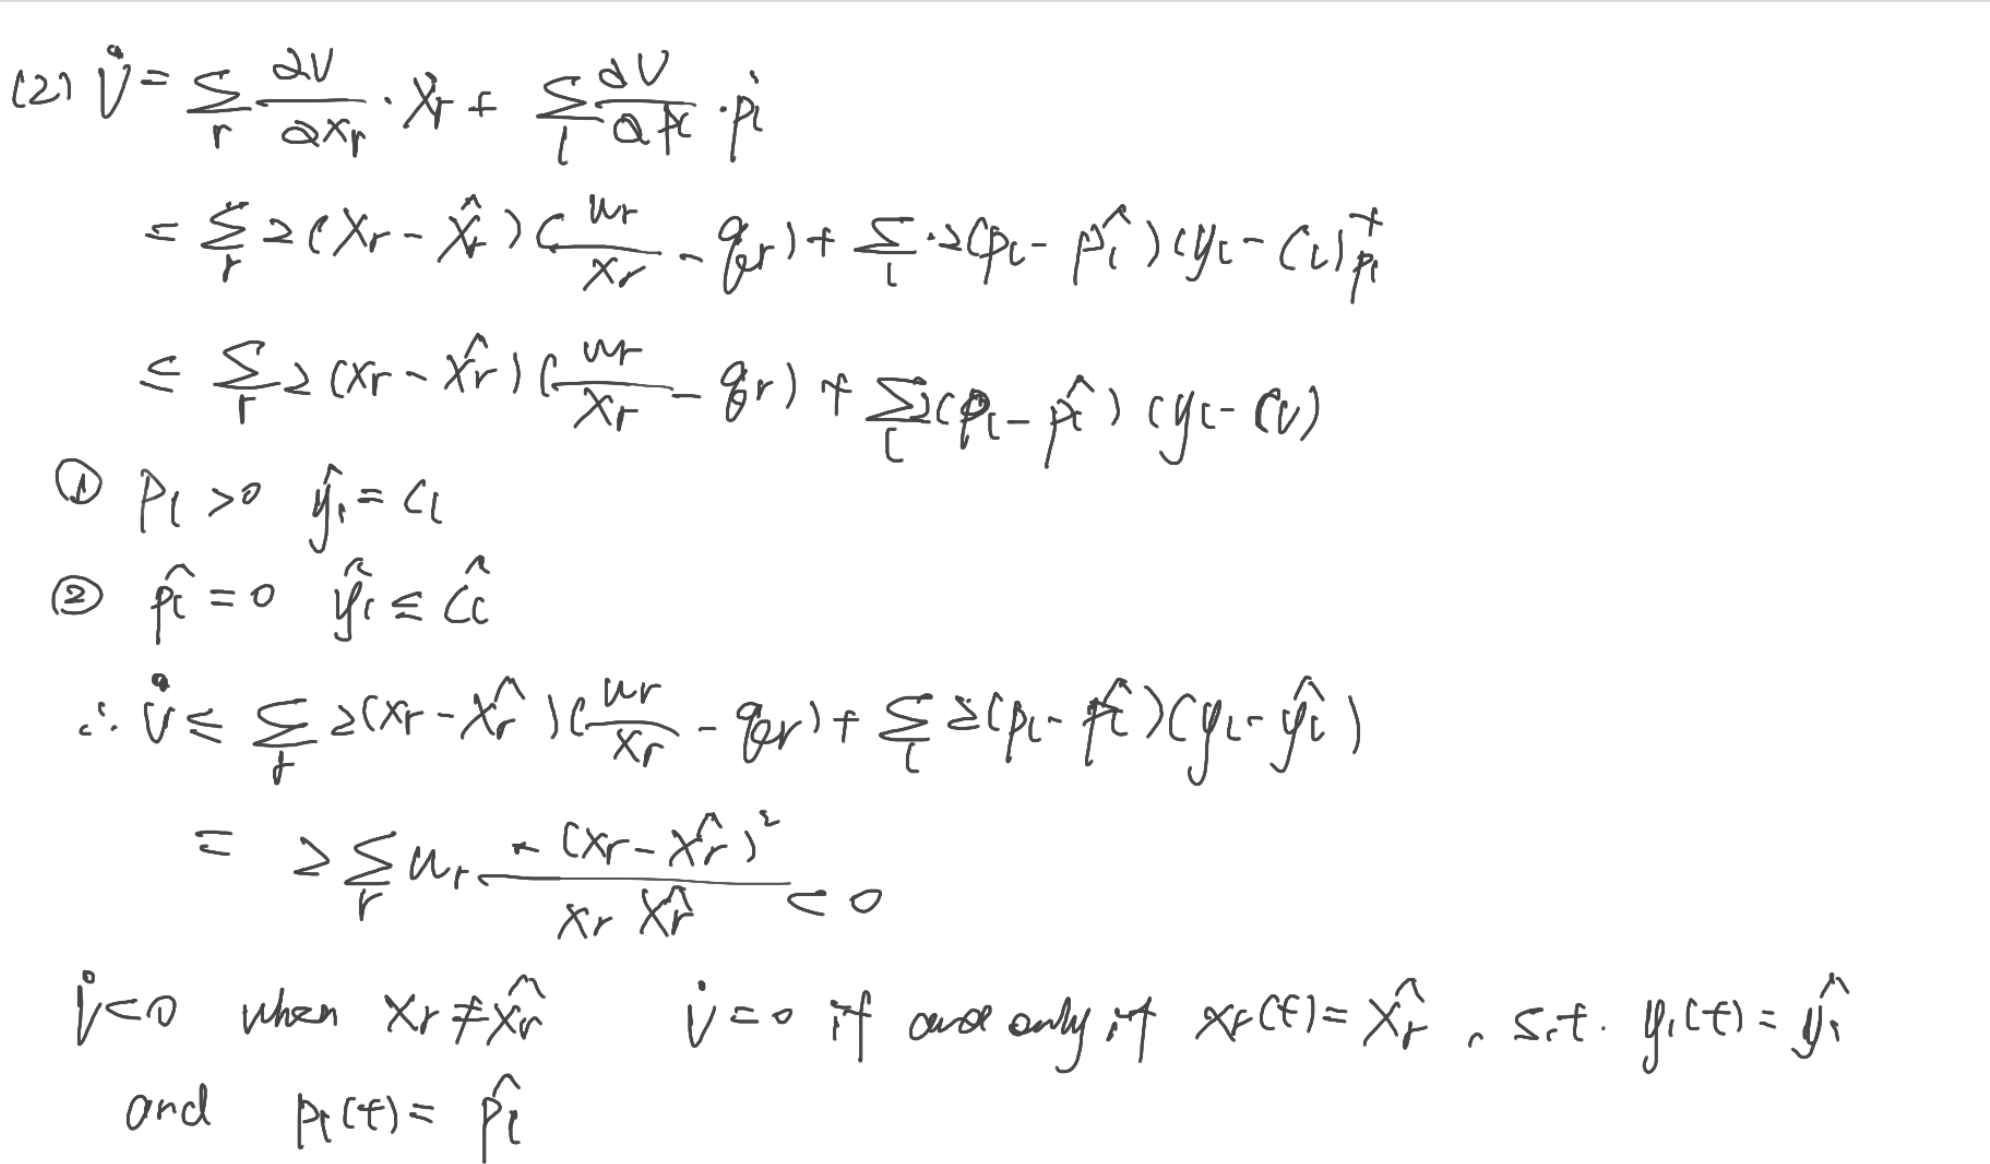 (2) V̇ = Σ_r ∂V/∂x_r · ẋ_r + Σ_l ∂V/∂p_l · ṗ_l
= Σ_r 2(x_r - x̂_r)(w_r/x_r - q_r) + Σ_l 2(p_l - p̂_l)(y_l - c_l)^+_{p_l}
≤ Σ_r 2(x_r - x̂_r)(w_r/x_r - q_r) + Σ_l 2(p_l - p̂_l)(y_l - c_l)
① p_l > 0 ŷ_l = c_l
② p̂_l = 0 ŷ_l ≤ ĉ_l
∴ V̇ ≤ Σ_r 2(x_r - x̂_r)(w_r/x_r - q_r) + Σ_l 2(p_l - p̂_l)(y_l - ŷ_l)
= 2 Σ_r w_r · -(x_r - x̂_r)²/(x_r x̂_r) < 0
V̇ < 0 when x_r ≠ x̂_r V̇ = 0 if and only if x_r(t) = x̂_r, s.t. y_l(t) = ŷ_l
and p_l(t) = p̂_l